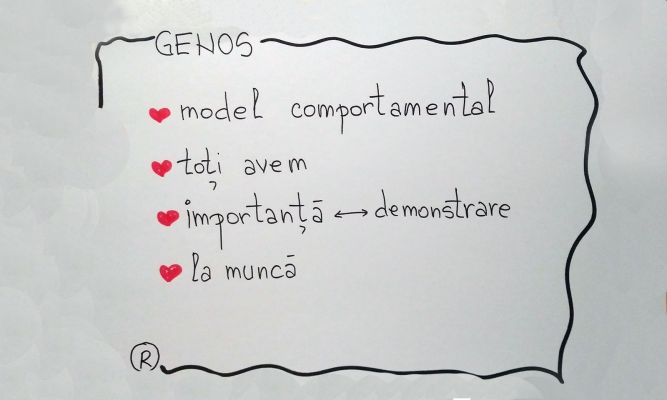 GENOS
model comportamental
toți avem
importanță ↔ demonstrare
la muncă
®